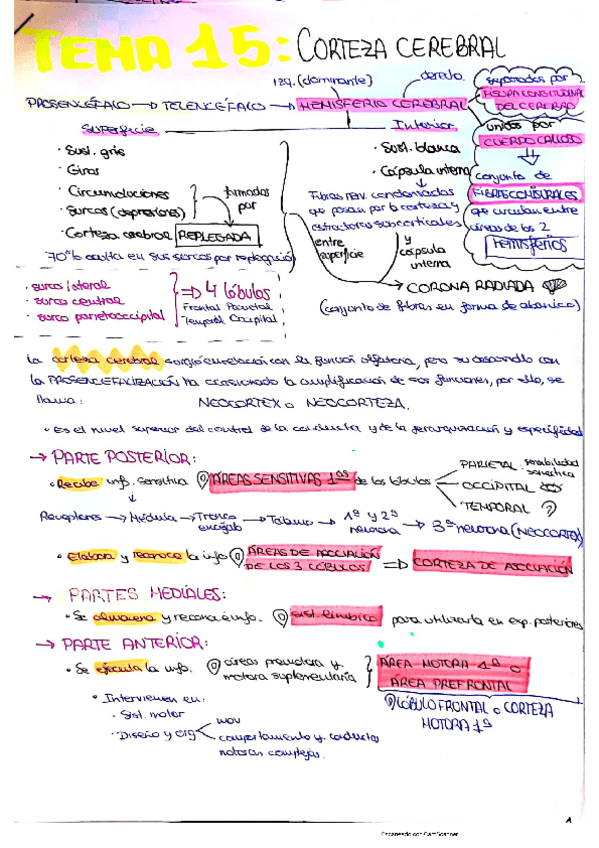 TEMA 15: CORTEZA CEREBRAL
izq. (dominante) derecho.
PROSENCÉFALO → TELENCÉFALO → HEMISFERIO CEREBRAL
separados por
FISURA LONGITUDINAL
DEL CEREBRO
unidos por
CUERPO CALLOSO
conjunto de
FIBRAS COMISURALES
que circulan entre
de los 2
Hemisferios
Superficie
· Sust. gris
· Giros
· Circunvoluciones
· Surcos (depresiones)
formados
por
· Corteza cerebral REPLEGADA
70% oculta en sus surcos por
Interior
· Sust. blanca
· Cápsula interna
Fibras nerv. condensadas
que pasan por la corteza y
estructuras subcorticales
entre
superficie
y
cápsula
interna
→ CORONA RADIADA
(conjunto de fibras en forma de abanico)
· surco lateral
· surco central
· surco parietooccipital
⇒ 4 lóbulos
Frontal Parietal
Temporal Occipital
La corteza cerebral surgió en relación con la función olfatoria, pero su desarrollo con
la PROSENCEFALIZACIÓN ha ocasionado la amplificación de sus funciones, por ello, se
llama: NEOCORTEX o NEOCORTEZA.
· Es el nivel superior del control de la conducta y de la jerarquización y especificidad
→ PARTE POSTERIOR:
· Recibe inf. sensitiva ÁREAS SENSITIVAS 1as de los lóbulos
PARIETAL: sensibilidad
OCCIPITAL
TEMPORAL
Receptores → Médula → Tronco encéfalo → Tálamo → 1ª y 2ª neurona → 3ª neurona (NEOCORTEX)
· Elabora y reconoce la info ÁREAS DE ASOCIACIÓN
DE LOS 3 LÓBULOS ⇒ CORTEZA DE ASOCIACIÓN
→ PARTES MEDIALES:
· Se almacena y reconoce info. sist. límbico para utilizarla en exp. posteriores
→ PARTE ANTERIOR:
· Se ejecuta la info. áreas premotora y
motora suplementaria
ÁREA MOTORA 1ª o
ÁREA PREFRONTAL
LÓBULO FRONTAL o CORTEZA
MOTORA 1ª
· Intervienen en:
· Sist. motor
· Diseño y org
mov
comportamiento y conductas
motoras complejas.
Escaneado con CamScanner